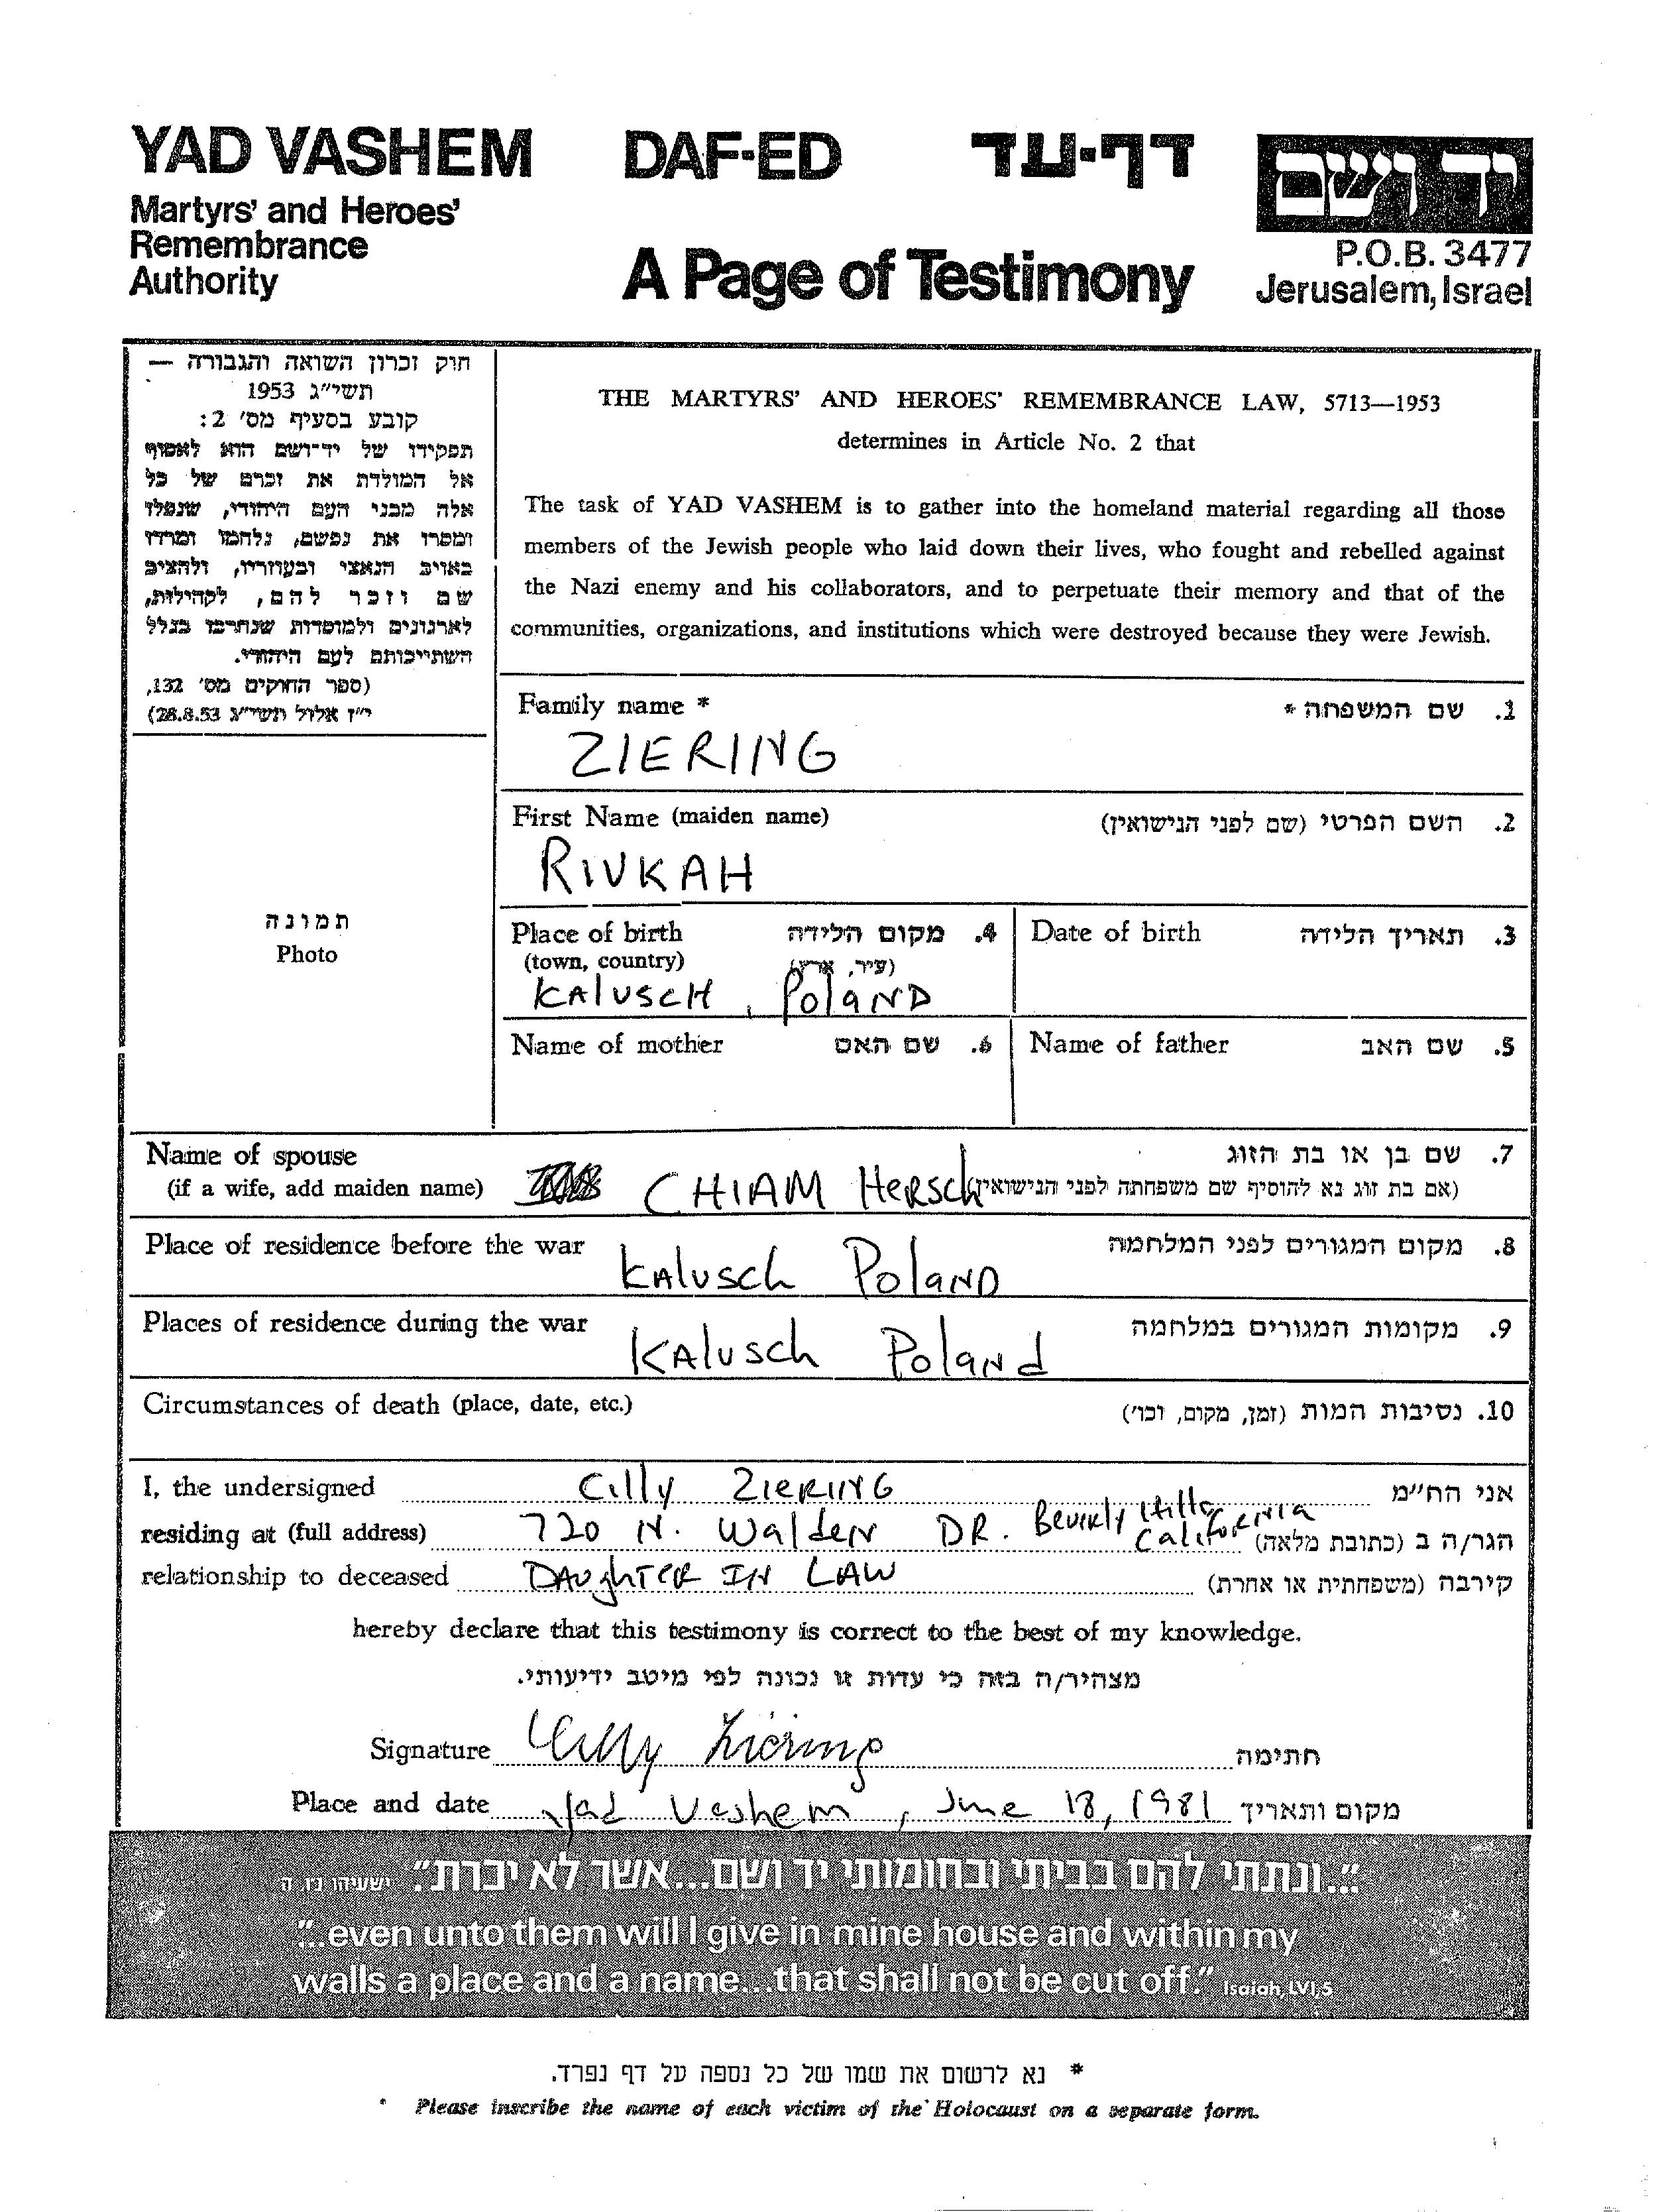 YAD VASHEM DAF-ED דף-עד יד ושם
Martyrs' and Heroes'
Remembrance
Authority
A Page of Testimony
P.O.B. 3477
Jerusalem, Israel
חוק זכרון השואה והגבורה —
תשי"ג 1953
קובע בסעיף מס' 2:
תפקידו של יד־ושם הוא לאסוף
אל המולדת את זכרם של כל
אלה מבני העם היהודי, שנפלו
ומסרו את נפשם, נלחמו ומרדו
באויב הנאצי ובעוזריו, ולהציב
שם וזכר להם, לקהילות,
לארגונים ולמוסדות שנחרבו בגלל
השתייכותם לעם היהודי.
(ספר החוקים מס' 132,
י"ז אלול תשי"ג 28.8.53)
תמונה
Photo
THE MARTYRS' AND HEROES' REMEMBRANCE LAW, 5713—1953
determines in Article No. 2 that
The task of YAD VASHEM is to gather into the homeland material regarding all those
members of the Jewish people who laid down their lives, who fought and rebelled against
the Nazi enemy and his collaborators, and to perpetuate their memory and that of the
communities, organizations, and institutions which were destroyed because they were Jewish.
Family name * 1. שם המשפחה *
ZIERING
First Name (maiden name) 2. השם הפרטי (שם לפני הנישואין)
RIVKAH
Place of birth 4. מקום הלידה
(town, country) (עיר, ארץ)
KAlUSCH, PolaND
Date of birth 3. תאריך הלידה
Name of mother 6. שם האם
Name of father 5. שם האב
Name of spouse 7. שם בן או בת הזוג
(if a wife, add maiden name) CHIAM HeRSch (אם בת זוג נא להוסיף שם משפחתה לפני הנישואין)
Place of residence before the war KAlUSch PolaND 8. מקום המגורים לפני המלחמה
Places of residence during the war KAlUSch PolaNd 9. מקומות המגורים במלחמה
Circumstances of death (place, date, etc.) 10. נסיבות המות (זמן, מקום, וכו')
I, the undersigned Cilly ZIERING אני הח"מ
residing at (full address) 720 N. Walden DR. Beverly Hills California הגר/ה ב (כתובת מלאה)
relationship to deceased DAughTER IN LAW קירבה (משפחתית או אחרת)
hereby declare that this testimony is correct to the best of my knowledge.
מצהיר/ה בזה כי עדות זו נכונה לפי מיטב ידיעותי.
Signature Cilly Ziering חתימה
Place and date Yad Vashem, June 18, 1981 מקום ותאריך
"...ונתתי להם בביתי ובחומותי יד ושם...אשר לא יכרת." ישעיהו נו, ה
"...even unto them will I give in mine house and within my
walls a place and a name...that shall not be cut off." Isaiah, LVI, 5
* נא לרשום את שמו של כל נספה על דף נפרד.
* Please inscribe the name of each victim of the Holocaust on a separate form.